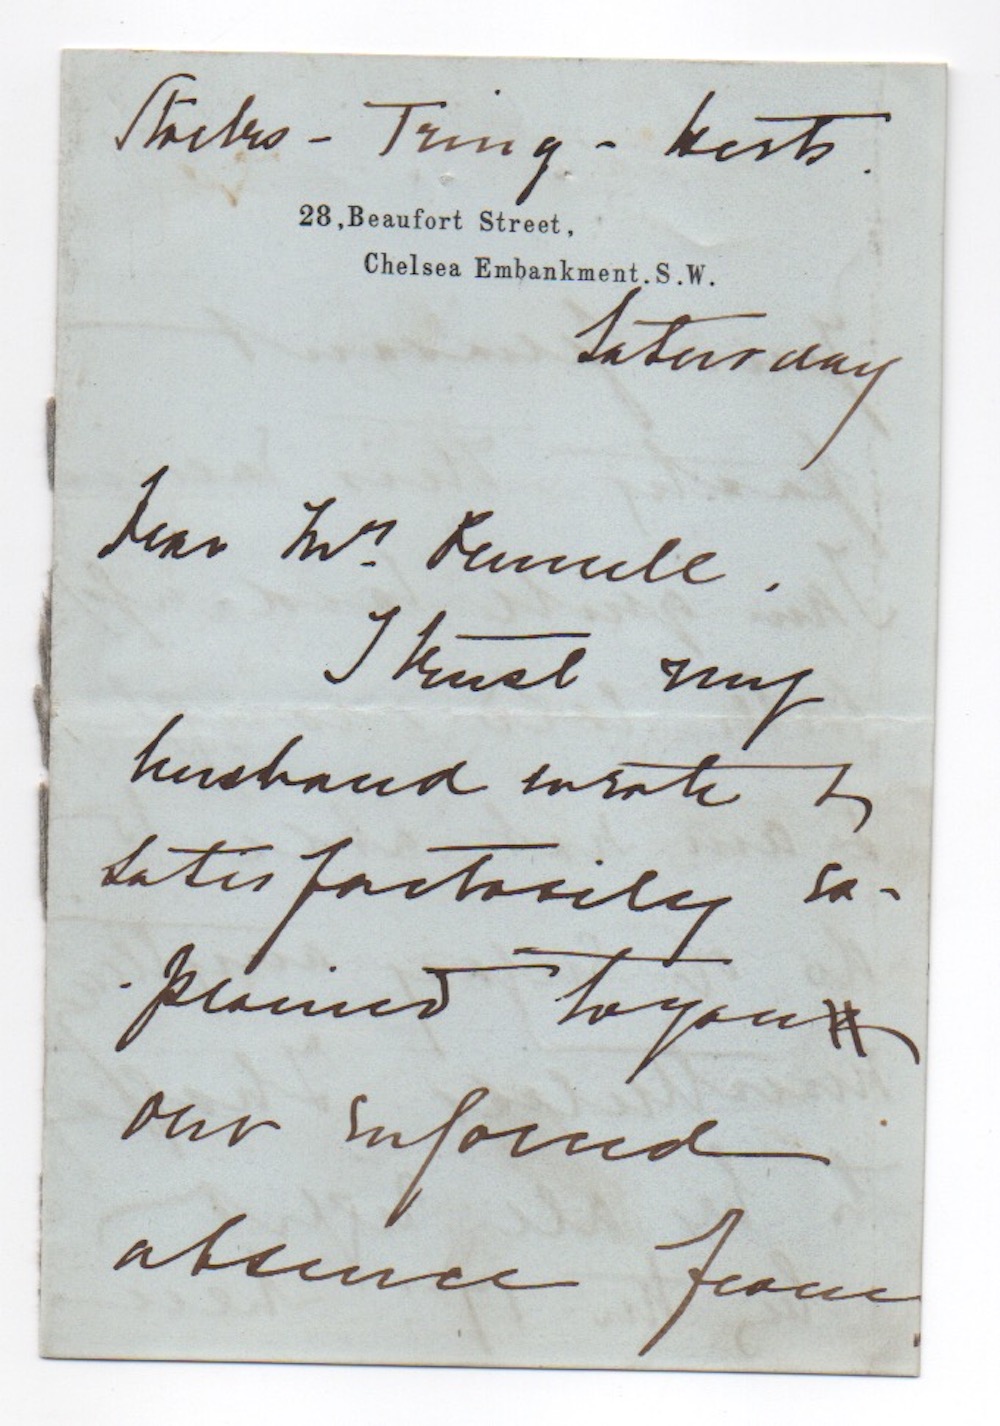 Stocks - Tring - Herts.
28, Beaufort Street,
Chelsea Embankment. S.W.
Saturday
Dear Mrs.
I trust my
husband wrote &
satisfactorily ex-
-plained to you
our enforced
absence from